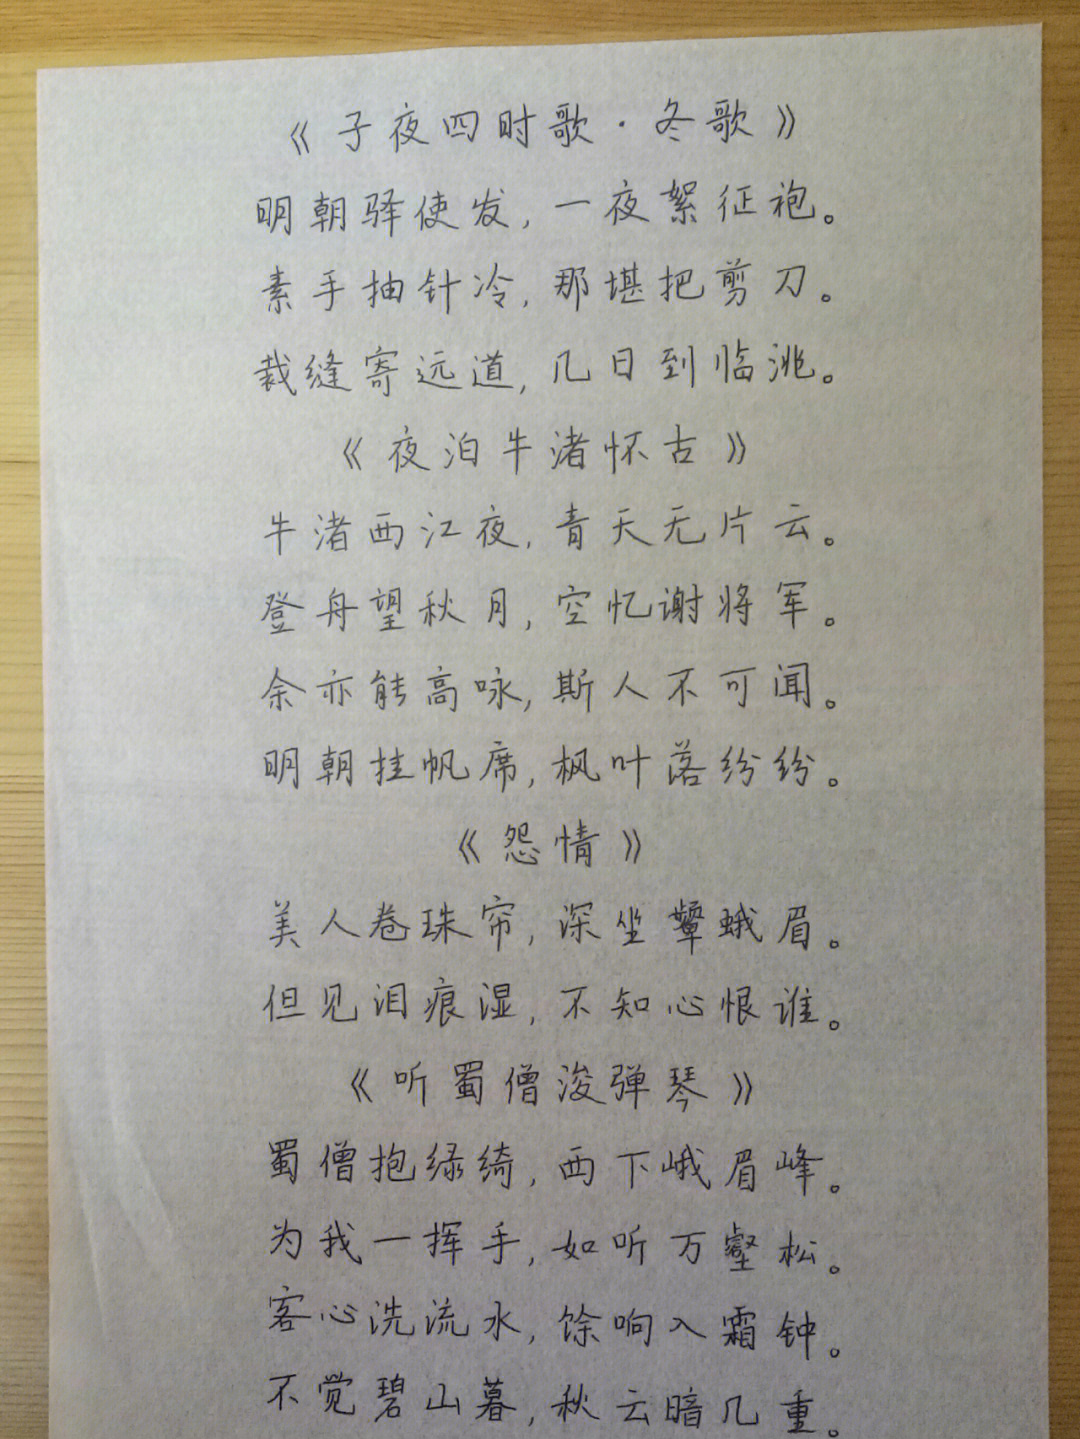 《子夜四时歌·冬歌》
明朝驿使发,一夜絮征袍。
素手抽针冷,那堪把剪刀。
裁缝寄远道,几日到临洮。
《夜泊牛渚怀古》
牛渚西江夜,青天无片云。
登舟望秋月,空忆谢将军。
余亦能高咏,斯人不可闻。
明朝挂帆席,枫叶落纷纷。
《怨情》
美人卷珠帘,深坐颦蛾眉。
但见泪痕湿,不知心恨谁。
《听蜀僧浚弹琴》
蜀僧抱绿绮,西下峨眉峰。
为我一挥手,如听万壑松。
客心洗流水,馀响入霜钟。
不觉碧山暮,秋云暗几重。